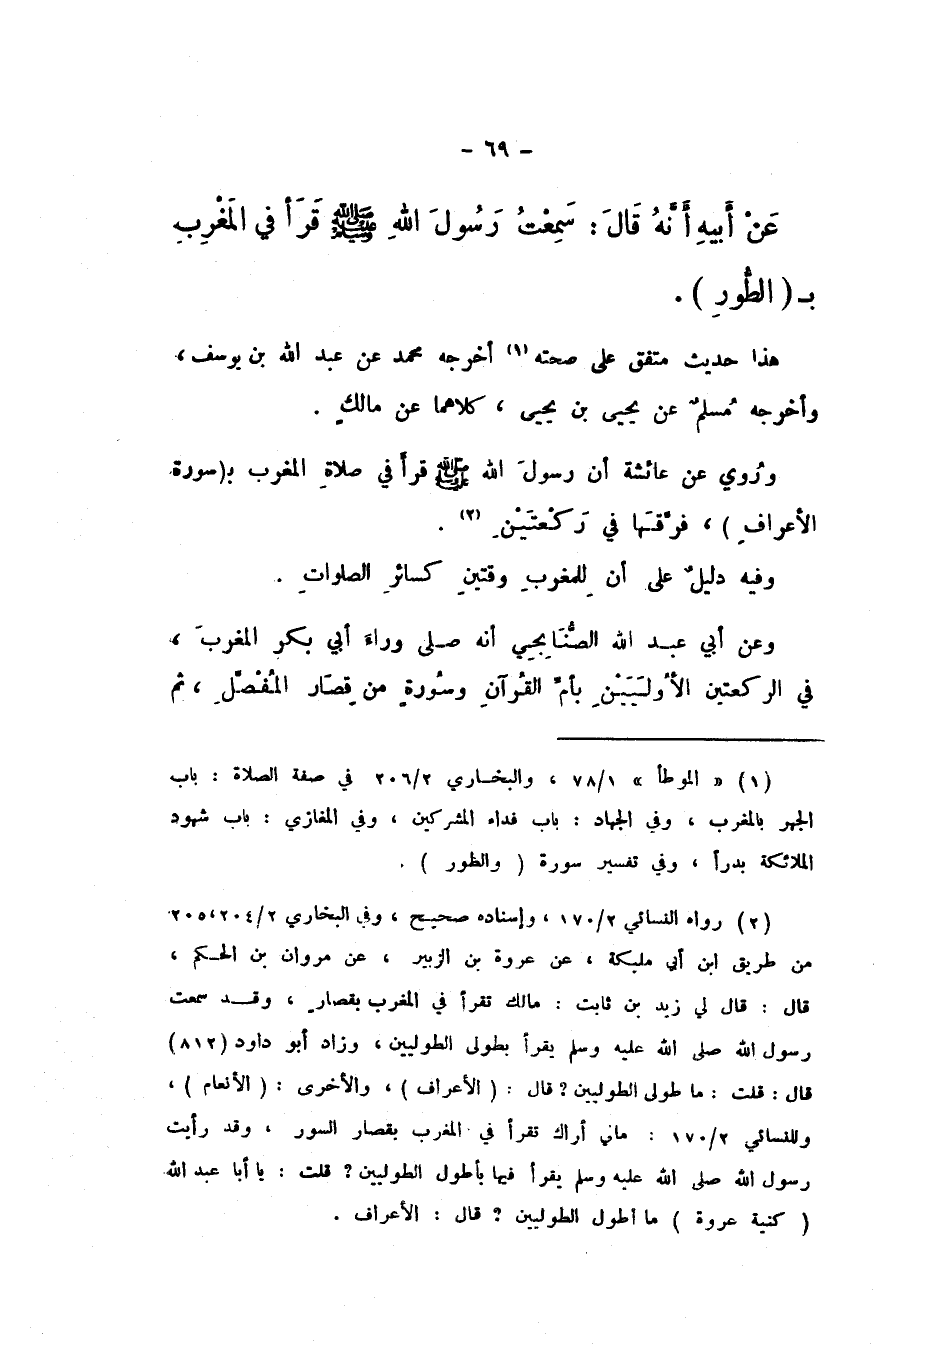 - ٦٩ -
عَنْ أَبيهِ أَنَّهُ قَالَ : سَمِعْتُ رَسُولَ اللهِ ﷺ قَرَأَ في المَغْرِبِ
بـ ( الطُّورِ ) .
هذا حديث متفق على صحته (١) أخرجه محمد عن عبد الله بن يوسف ،
وأخرجه مُسلمٌ عن يحيى بن يحيى ، كلاهما عن مالكٍ .
ورُوي عن عائشة أن رسولَ الله ﷺ قرأَ في صلاةِ المغرب بـ(سورة
الأعرافِ ) ، فرَّقَـها في رَكْعتَيْنِ (٢) .
وفيه دليلٌ على أن لِلمغربِ وقتينِ كسائرِ الصلواتِ .
وعن أبي عبـد الله الصُّنَابِحِي أنه صـلى وراءَ أبي بكرٍ المغربَ ،
في الركعتين الأُولَيَيْنِ بأمِّ القُرآنِ وسُورةٍ من قِصَارِ المُفَصَّلِ ، ثم
(١) « الموطأ » ٧٨/١ ، والبخـاري ٢٠٦/٢ في صفة الصلاة : باب
الجهر بالمغرب ، وفي الجهاد : باب فداء المشركين ، وفي المغازي : باب شهود
الملائكة بدراً ، وفي تفسير سورة ( والطور ) .
(٢) رواه النسائي ١٧٠/٢ ، وإسناده صحيح ، وفي البخاري ٢٠٤/٢،٢٠٥
من طريق ابن أبي مليكة ، عن عروة بن الزبير ، عن مروان بن الحـكم ،
قال : قال لي زيد بن ثابت : مالك تقرأ في المغرب بقصارٍ ، وقـد سمعت
رسول الله صلى الله عليه وسلم يقرأ بطولى الطوليين ، وزاد أبو داود (٨١٢)
قال : قلت : ما طولى الطوليين ? قال : ( الأعراف ) ، والأخرى : ( الأنعام ) ،
وللنسائي ١٧٠/٢ : ماني أراك تقرأ في المغرب بقصار السور ، وقد رأيت
رسول الله صلى الله عليه وسلم يقرأ فيها بأطول الطوليين ? قلت : يا أبا عبد الله
( كنية عروة ) ما أطول الطوليين ? قال : الأعراف .